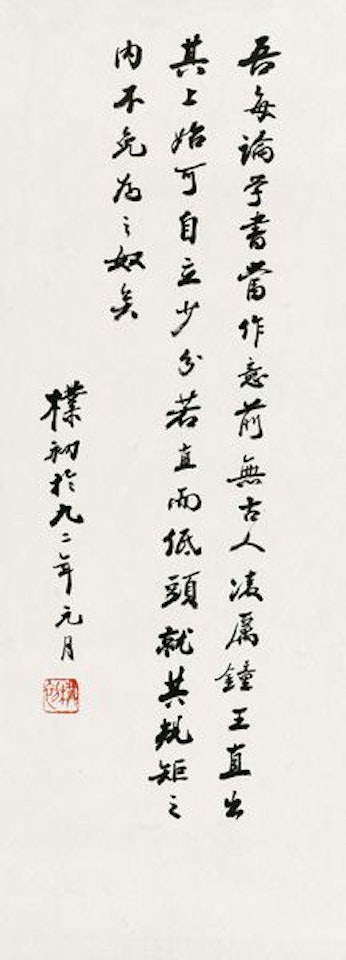 吾每論学書當作意前無古人凌厲鍾王直出
其上始可自立少分若直而低頭就其規矩之
内不免为之奴矣
樸初於九二年元月
樸初